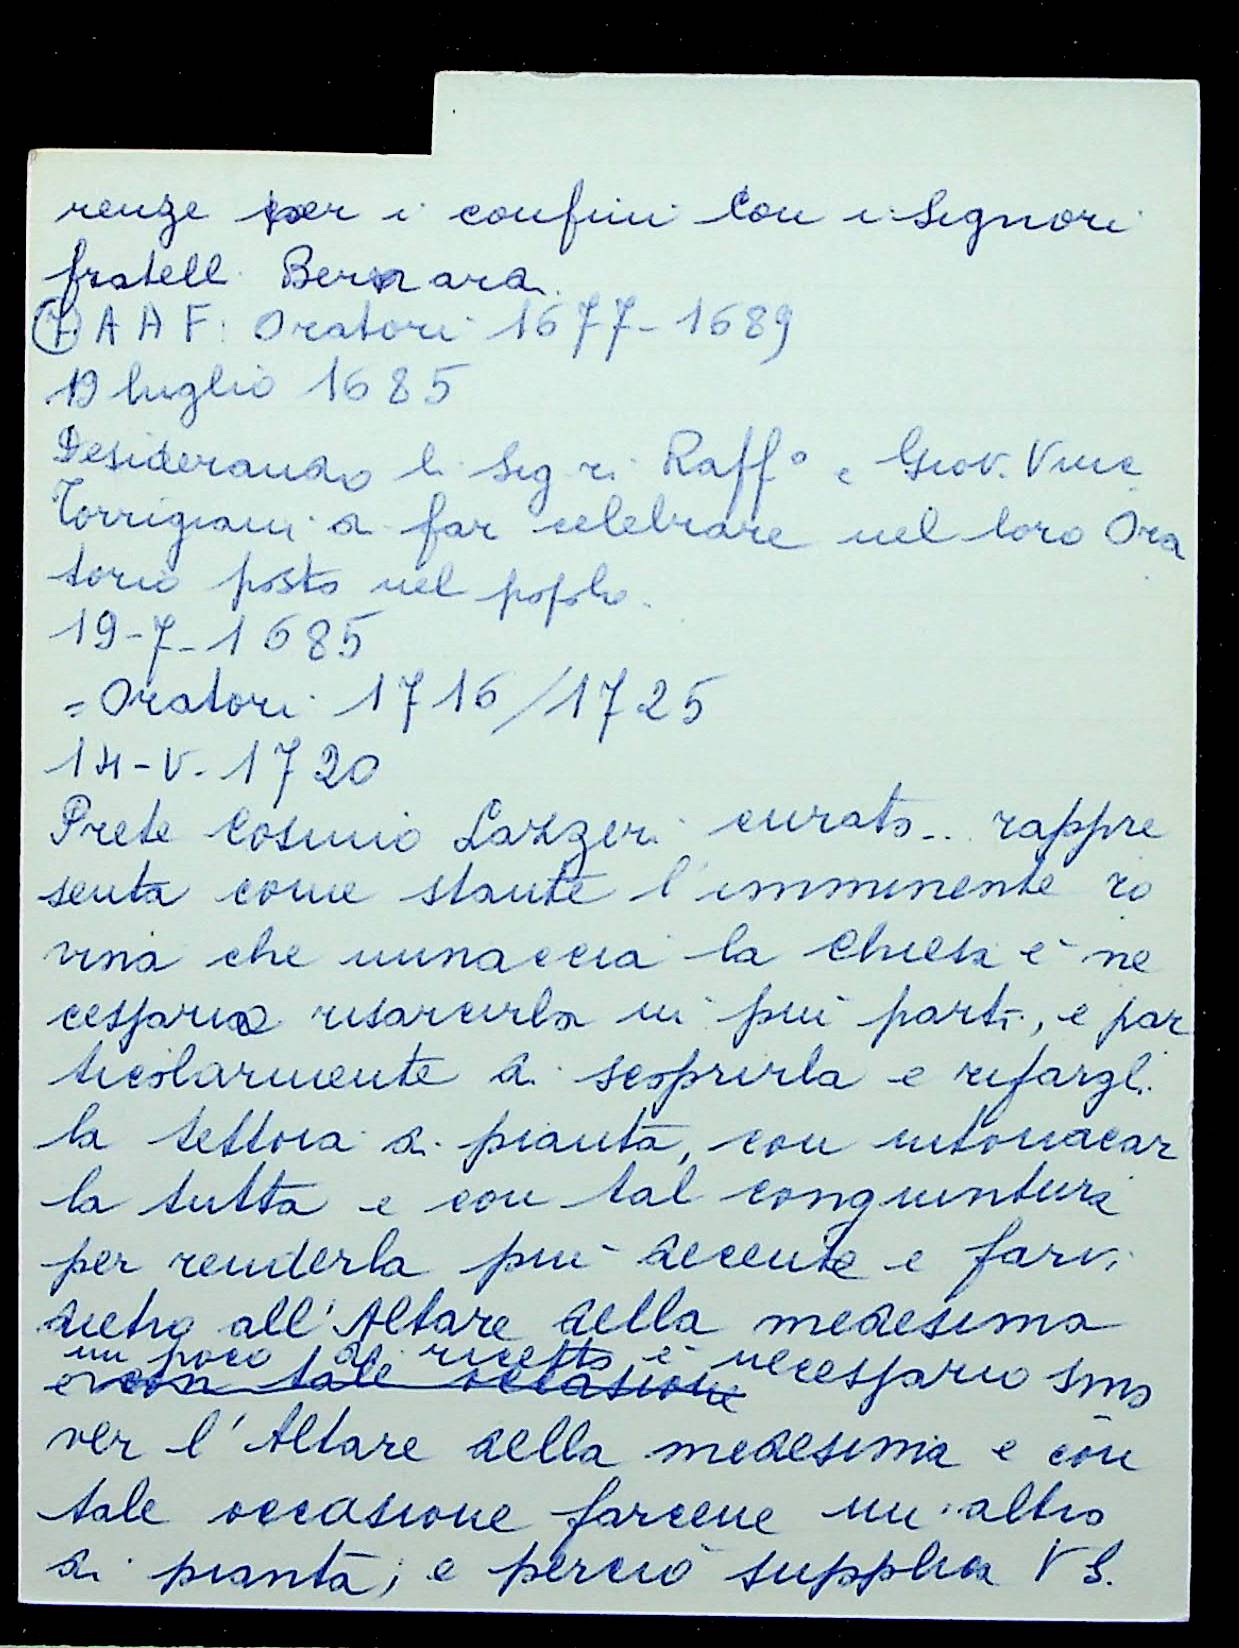 renze per i confini con i Signori
fratelli Bernardi.
A A F: Oratori 1677-1689
19 luglio 1685
Desiderando li Sig.ri Raff° e Giov. Vinc.
Torrigiani di far celebrare nel loro Ora
torio posto nel popolo.
19-7-1685
=Oratori 1716/1725
14-V-1720
Prete Cosimo Lazzeri curato... rappre
senta come stante l'imminente ro
vina che minaccia la Chiesa è ne
cessario risarcirla in più parti, e par
ticolarmente di scoprirla e rifargli
la tettoia di pianta, con intonacar
la tutta e con tal congiuntura
per renderla più decente e farvi
dietro all'Altare della medesima
un poco di ricetto, è necessario smo
e con tale occasione
ver l'Altare della medesima e con
tale occasione farcene un altro
di pianta; e perciò supplica V S.